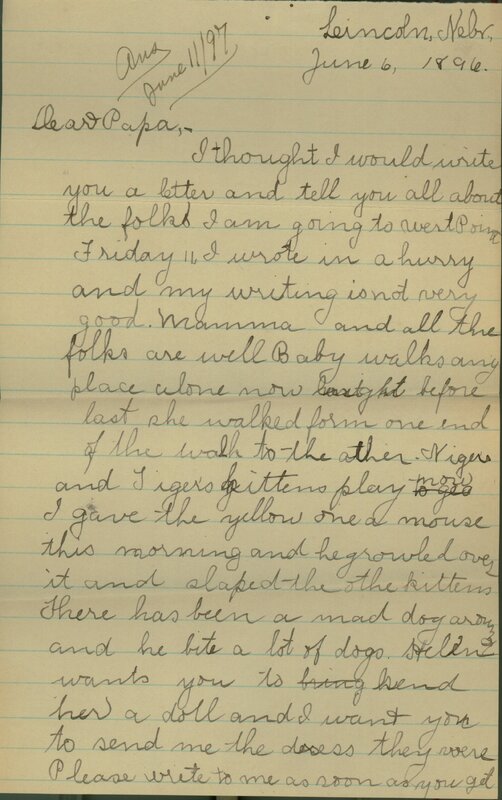 Lincoln, Nebr.
June 6, 1896.
Ans
June 11/97
Dear Papa,-
I thought I would write
you a letter and tell you all about
the folks I am going to west Point
Friday 11, I wrote in a hurry
and my writing is not very
good. Mamma and all the
folks are well Baby walks any
place alone now before
last she walked form one end
of the walk to the other. Nigers
and Tigers kittens play now
I gave the yellow one a mouse
this morning and he growled over
it and slaped the othe kittens
There has been a mad dog around
and he bite a lot of dogs. Helen
wants you to bring send
her a doll and I want you
to send me the dress they were
Please write to me as soon as you get